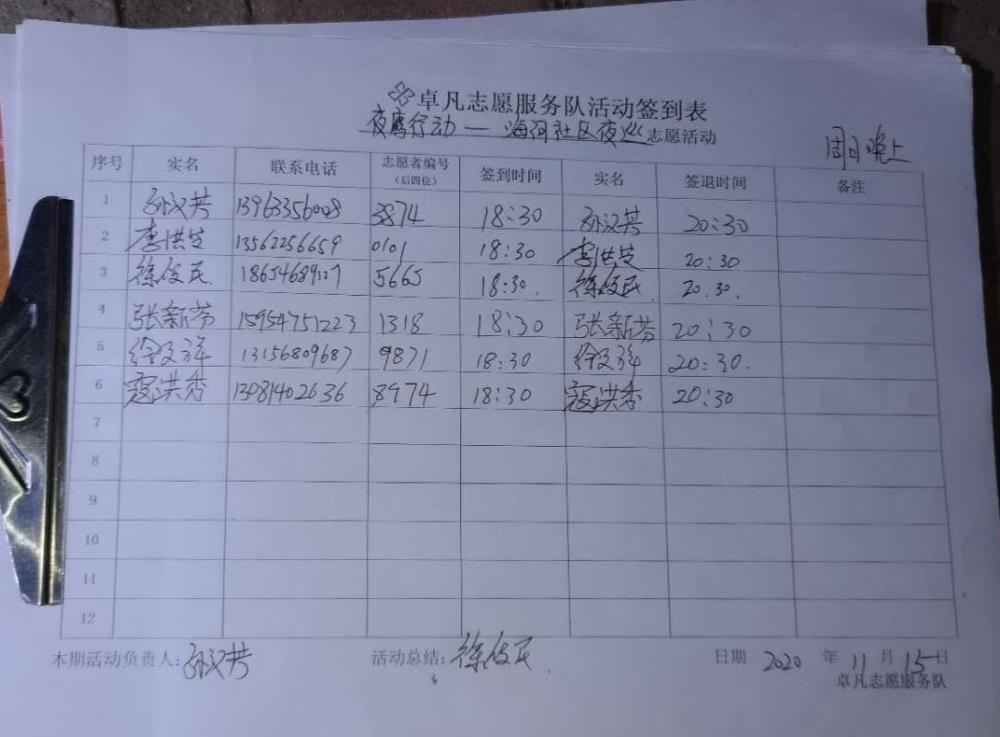 卓凡志愿服务队活动签到表
夜鹰行动 — 海河社区夜巡 志愿活动
周日晚上
序号 实名 联系电话 志愿者编号（后四位） 签到时间 实名 签退时间 备注
1 孙汉芹 13963356008 3874 18:30 孙汉芹 20:30
2 李洪生 13562256659 0101 18:30 李洪生 20:30
3 徐俊民 18654689107 5665 18:30. 徐俊民 20.30.
4 张新芬 15954751223 1318 18:30 张新芬 20:30
5 13156809687 9871 18:30 20:30.
6 寇洪秀 13081402636 8974 18:30 寇洪秀 20:30
7
8
9
10
11
12
本期活动负责人: 孙汉芹 活动总结: 徐俊民 日期 2020 年 11 月 15 日
卓凡志愿服务队